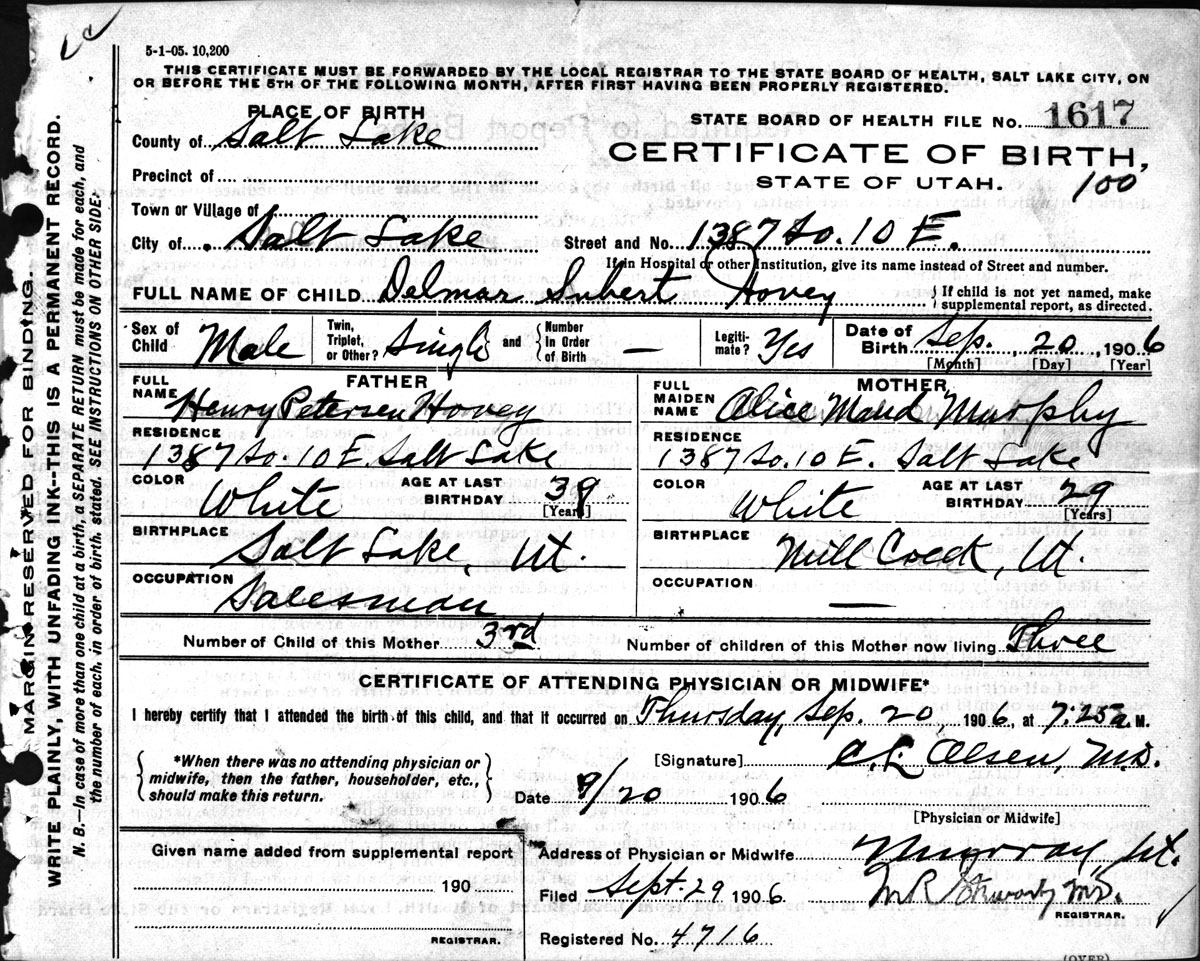 5-1-05. 10,200
THIS CERTIFICATE MUST BE FORWARDED BY THE LOCAL REGISTRAR TO THE STATE BOARD OF HEALTH, SALT LAKE CITY, ON
OR BEFORE THE 5TH OF THE FOLLOWING MONTH, AFTER FIRST HAVING BEEN PROPERLY REGISTERED.
PLACE OF BIRTH
STATE BOARD OF HEALTH FILE No. 1617
County of Salt Lake
CERTIFICATE OF BIRTH,
Precinct of
STATE OF UTAH. 100
Town or Village of
City of Salt Lake Street and No. 1387 So. 10 E.
If in Hospital or other Institution, give its name instead of Street and number.
FULL NAME OF CHILD Delmar Hovey { If child is not yet named, make
supplemental report, as directed.
Sex of Child Male Twin, Triplet, or Other? Single and { Number In Order of Birth — Legiti-mate? Yes Date of Birth Sep. 20, 1906
[Month] [Day] [Year]
FATHER
FULL NAME Henry Petersen Hovey
RESIDENCE
1387 So. 10 E. Salt Lake
COLOR White AGE AT LAST BIRTHDAY 39
[Years]
BIRTHPLACE
Salt Lake, Ut.
OCCUPATION
Salesman
MOTHER
FULL MAIDEN NAME Alice Maud Murphy
RESIDENCE
1387 So. 10 E. Salt Lake
COLOR White AGE AT LAST BIRTHDAY 29
[Years]
BIRTHPLACE
Mill Creek, Ut.
OCCUPATION
—
Number of Child of this Mother 3rd Number of children of this Mother now living Three
CERTIFICATE OF ATTENDING PHYSICIAN OR MIDWIFE*
I hereby certify that I attended the birth of this child, and that it occurred on Thursday, Sep. 20 1906, at 7:25 a. M.
*When there was no attending physician or
midwife, then the father, householder, etc.,
should make this return.
[Signature] Olsen, M.D.
Date 9/20 1906
[Physician or Midwife]
Given name added from supplemental report
190
REGISTRAR.
Address of Physician or Midwife Murray Ut.
Filed Sept. 29 1906 M.D.
REGISTRAR.
Registered No. 4716
(OVER)
MARGIN RESERVED FOR BINDING.
WRITE PLAINLY, WITH UNFADING INK--THIS IS A PERMANENT RECORD.
N. B.—In case of more than one child at a birth, a SEPARATE RETURN must be made for each, and
the number of each, in order of birth, stated. SEE INSTRUCTIONS ON OTHER SIDE.